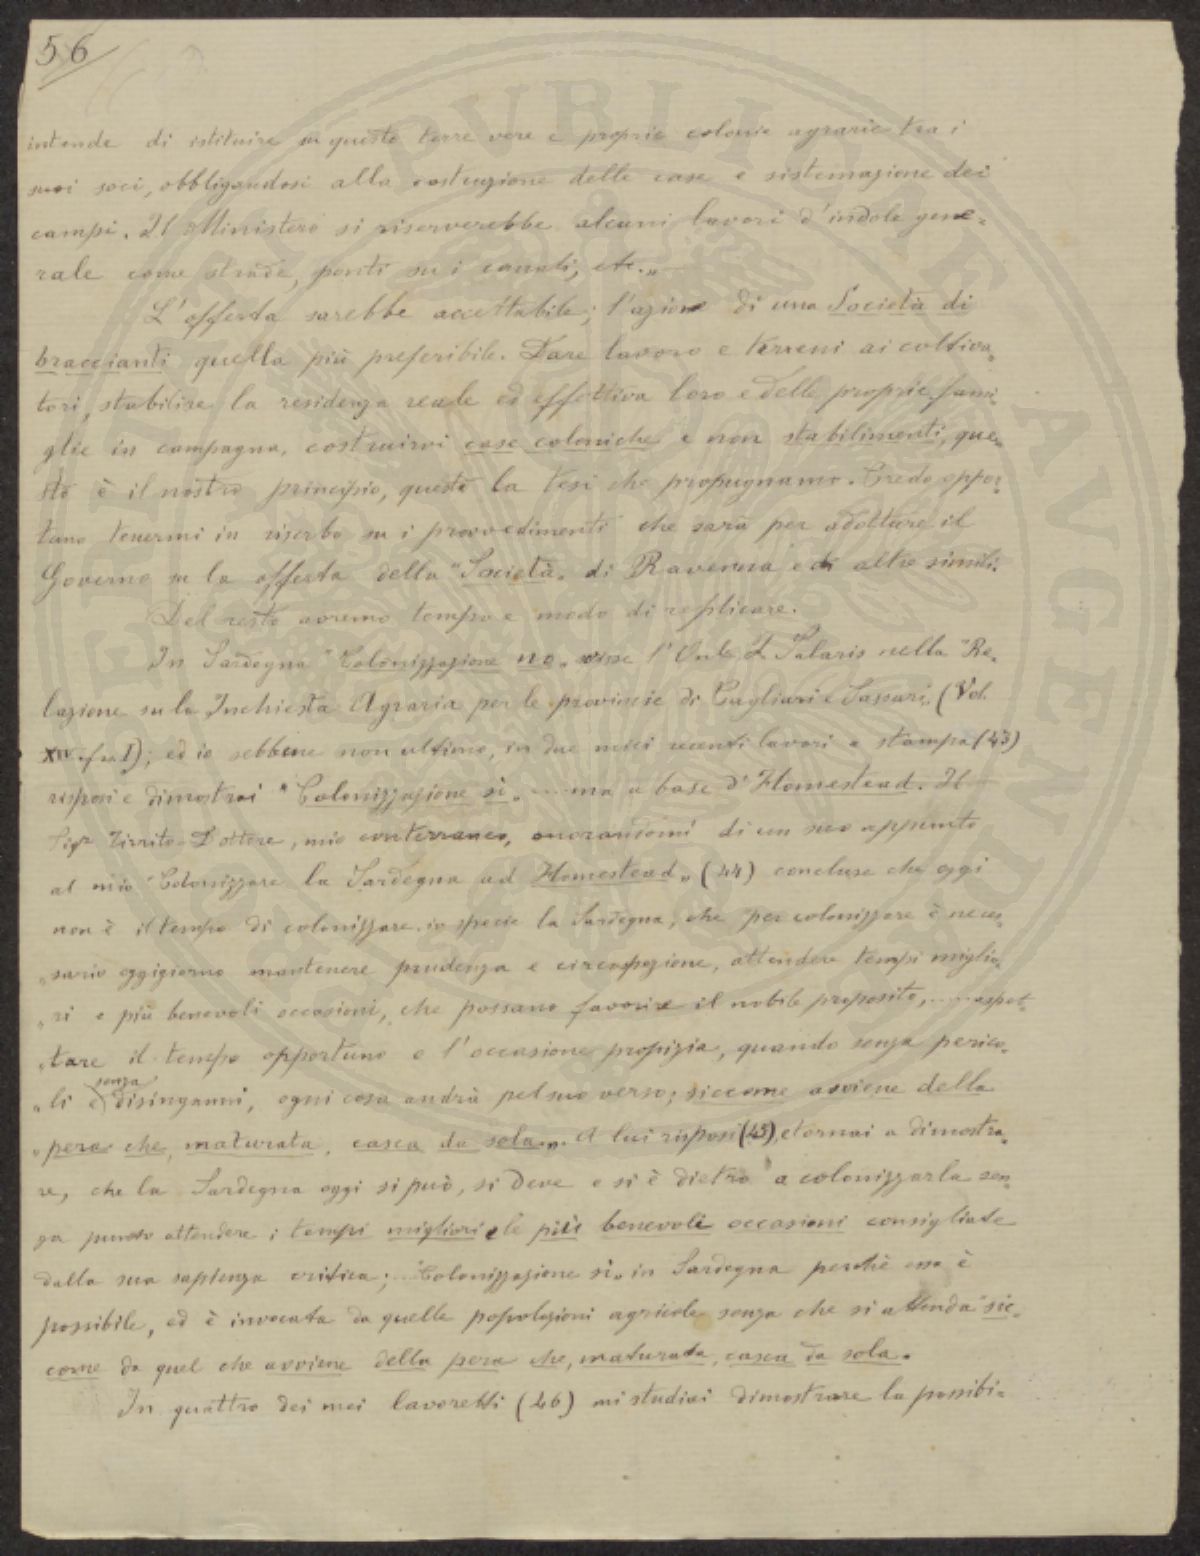 56
intende di istituire su queste terre vere e proprie colonie agrarie tra i
suoi soci, obbligandosi alla costruzione delle case e sistemazione dei
campi. Il Ministero si riserverebbe alcuni lavori d'indole gene-
rale come strade, ponti su i canali, etc.„
L'offerta sarebbe accettabile; l'azione di una Società di
braccianti quella più preferibile. Dare lavoro e terreni ai coltiva-
tori, stabilire la residenza reale ed effettiva loro e delle proprie fami-
glie in campagna, costruirvi case coloniche e non stabilimenti, que-
sto è il nostro principio, questa la tesi che propugnamo. Credo oppor-
tuno tenermi in riserbo su i provvedimenti che sarà per adottare il
Governo su la offerta della "Società„ di Ravenna e di altre simili.
Del resto avremo tempo e modo di replicare.
In Sardegna "Colonizzazione no„ disse l'Onle F. Salaris nella "Re-
lazione su la Inchiesta Agraria per le provincie di Cagliari e Sassari„ (Vol.
XIV. f. I); ed io sebbene non ultimo, in due miei recenti lavori a stampa (43)
risposi e dimostrai "Colonizzazione sì„ .... ma a base d'Homestead. Il
Sigr Zirrito-Dottore, mio conterraneo, onorandomi di un suo appunto
al mio "Colonizzare la Sardegna ad Homestead„ (44) concluse che oggi
non è il tempo di colonizzare in specie la Sardegna, che "per colonizzare è neces-
„sario oggigiorno mantenere prudenza e circospezione, attendere tempi miglio-
„ri e più benevoli occasioni, che possano favorire il nobile proposito, ..... aspet-
„tare il tempo opportuno e l'occasione propizia, quando senza perico-
senza
„li e disinganni, ogni cosa andrà pel suo verso; siccome avviene della
„pera che, maturata, casca da sola„. A lui risposi (45), e tornai a dimostra-
re, che la Sardegna oggi si può, si deve e si è dietro a colonizzarla sen-
za punto attendere i tempi migliori e le più benevoli occasioni consigliate
dalla sua sapienza critica; "Colonizzazione sì„ in Sardegna perchè essa è
possibile, ed è invocata da quelle popolazioni agricole senza che si attenda "sic-
come da quel che avviene della pera che, maturata, casca da sola.
In quattro dei miei lavoretti (46) mi studiai dimostrare la possibi-